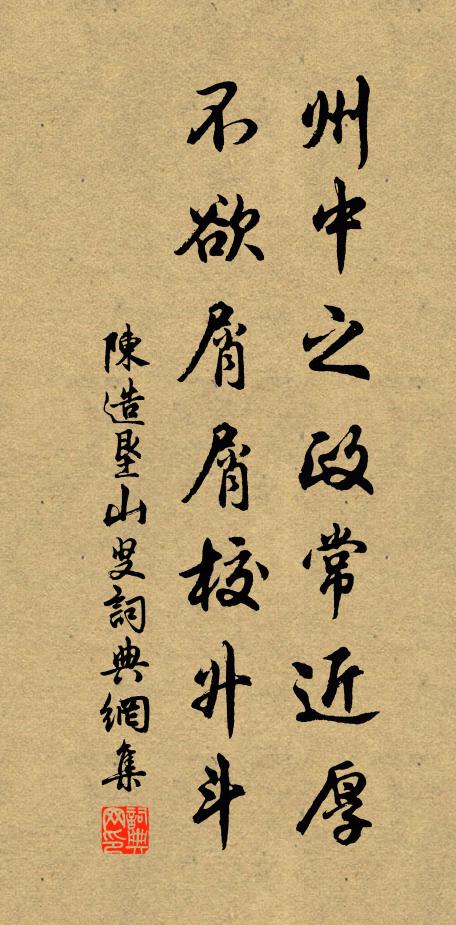 州中之政常近厚
不欲屑屑校升斗
陳造聖山叟詞典網集
詞典网印